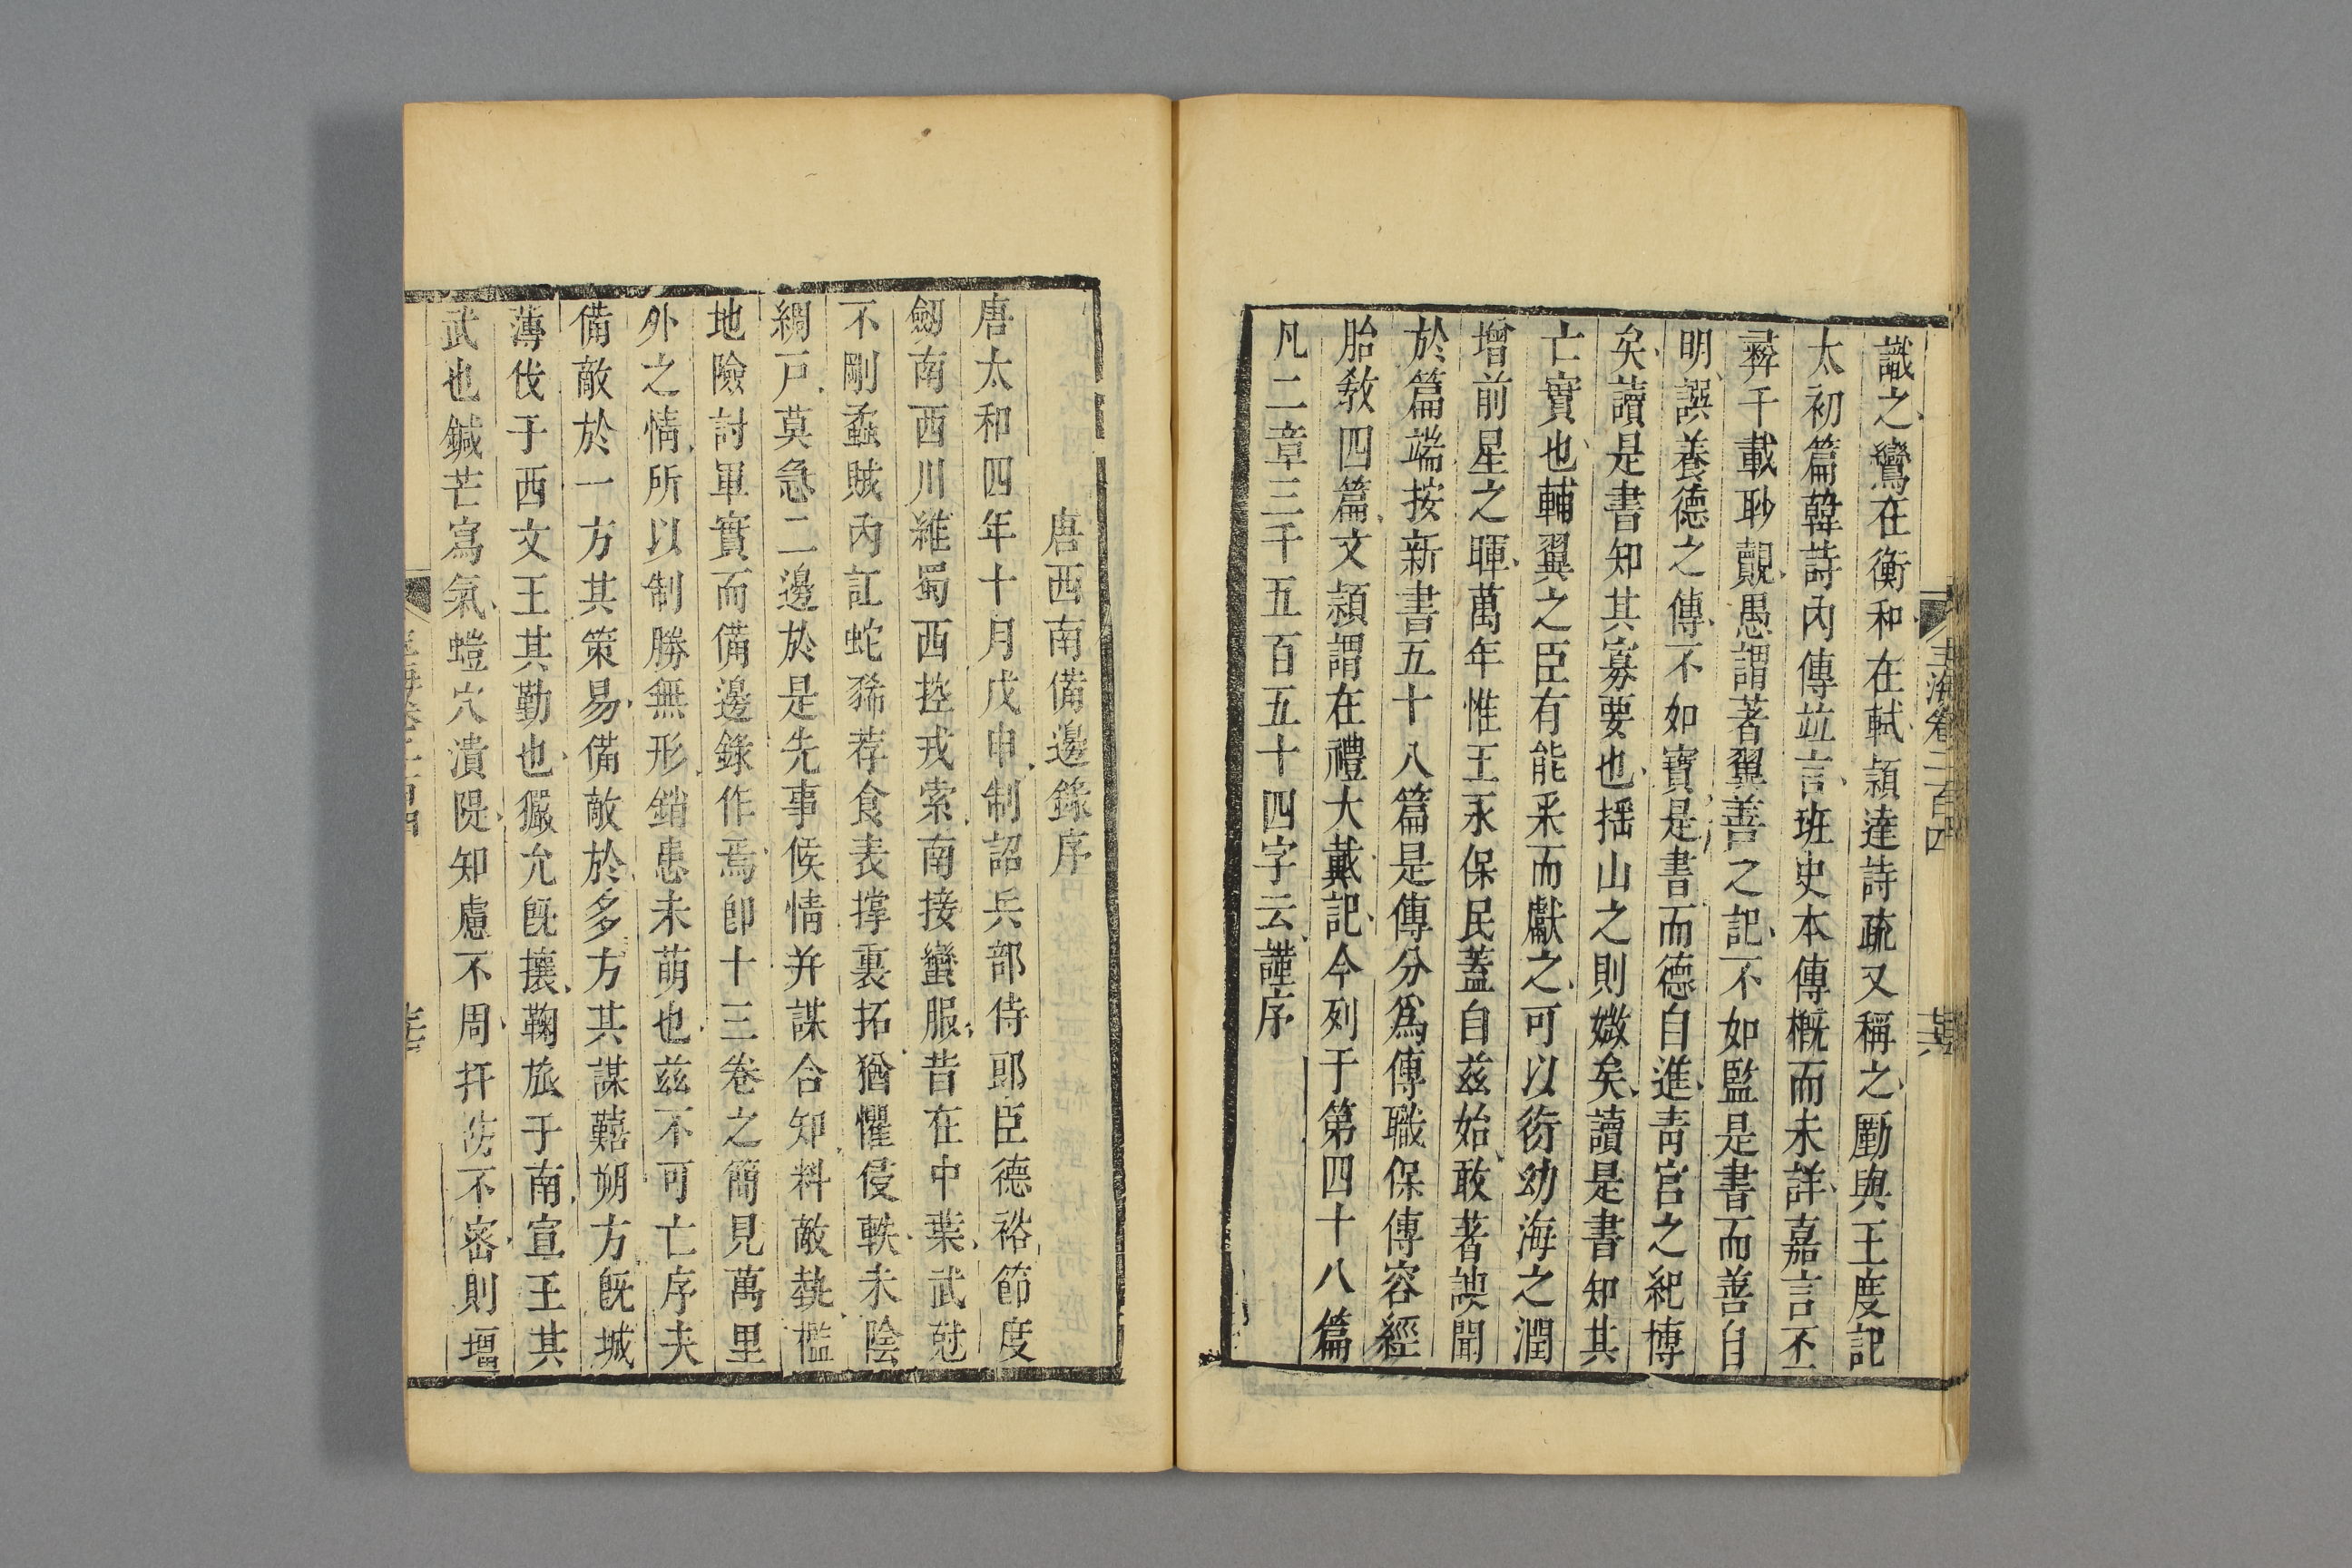 玉海卷二百四
識之鸞在衡和在軾穎達詩疏又稱之勵與王度記
太初篇韓詩內傳竝言班史本傳概而未詳嘉言丕
彛千載眇覿愚謂著翼善之記不如監是書而善自
明譔養德之傳不如寶是書而德自進青宮之紀博
矣讀是書知其寡要也揺山之則媺矣讀是書知其
亡實也輔翼之臣有能采而獻之可以衍幼海之潤
增前星之暉萬年惟王永保民蓋自兹始敢著謏聞
於篇端按新書五十八篇是傳分爲傳職保傳容經
胎敎四篇文穎謂在禮大戴記今列于第四十八篇
凡二章三千五百五十四字云謹序
唐西南備邊錄序
唐太和四年十月戊申制詔兵部侍郎臣德裕節度
劒南西川維蜀西控戎索南接蠻服昔在中葉武尅
不剛蟊賊内訌蛇豨荐食表撑裏拓猶懼侵軼未陰
綢戸莫急二邊於是先事候情并謀合知料敵埶檻
地險討軍實而備邊錄作焉卽十三卷之簡見萬里
外之情所以制勝無形銷患未萌也兹不可亡序夫
備敵於一方其策易備敵於多方其謀囏朔方旣城
薄伐于西文王其勤也玁允旣攘鞠旅于南宣王其
武也鍼芒寫氣螘穴潰隄知慮不周扞防不密則壃